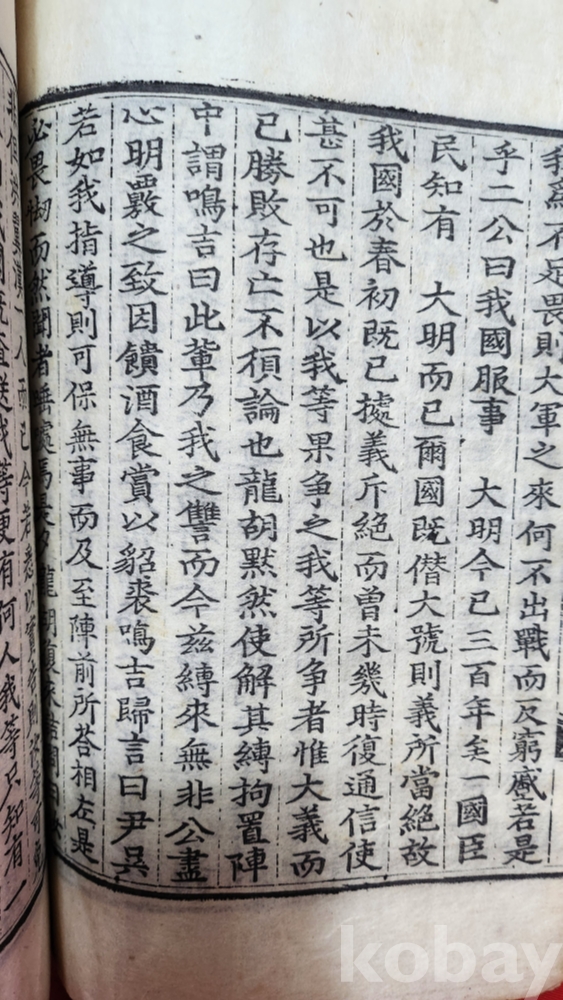 我爲不足畏則大軍之來何不出戰而反窮蹙若是
乎二公曰我國服事 大明今已三百年矣一國臣
民知有 大明而已爾國旣僭大號則義所當絶故
我國於春初旣已據義斥絶而曾未幾時復通信使
甚不可也是以我等果爭之我等所爭者惟大義而
已勝敗存亡不須論也龍胡默然使解其縛拘置陣
中謂鳴吉曰此輩乃我之讐而今玆縛來無非公盡
心明覈之致因饋酒食賞以貂裘鳴吉歸言曰尹吳
若如我指導則可保無事而及至陣前所答相左是
必畏㥘而然聞者
等更有何人我等只知有一
kobay